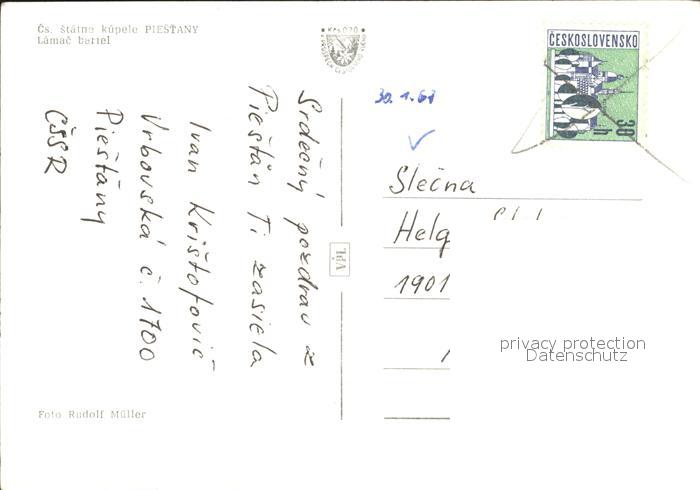 Čs. štátne kúpele PIEŠŤANY
Lámač bariel
ČESKOSLOVENSKO
30 h
30.1.68
Srdečný pozdrav z
Piešťan Ti zasiela
Ivan Krištofovič
Vrbovská č. 1700
Piešťany
ČSSR
Slečna
Helg
1901
VČT
privacy protection
Datenschutz
Foto Rudolf Müller